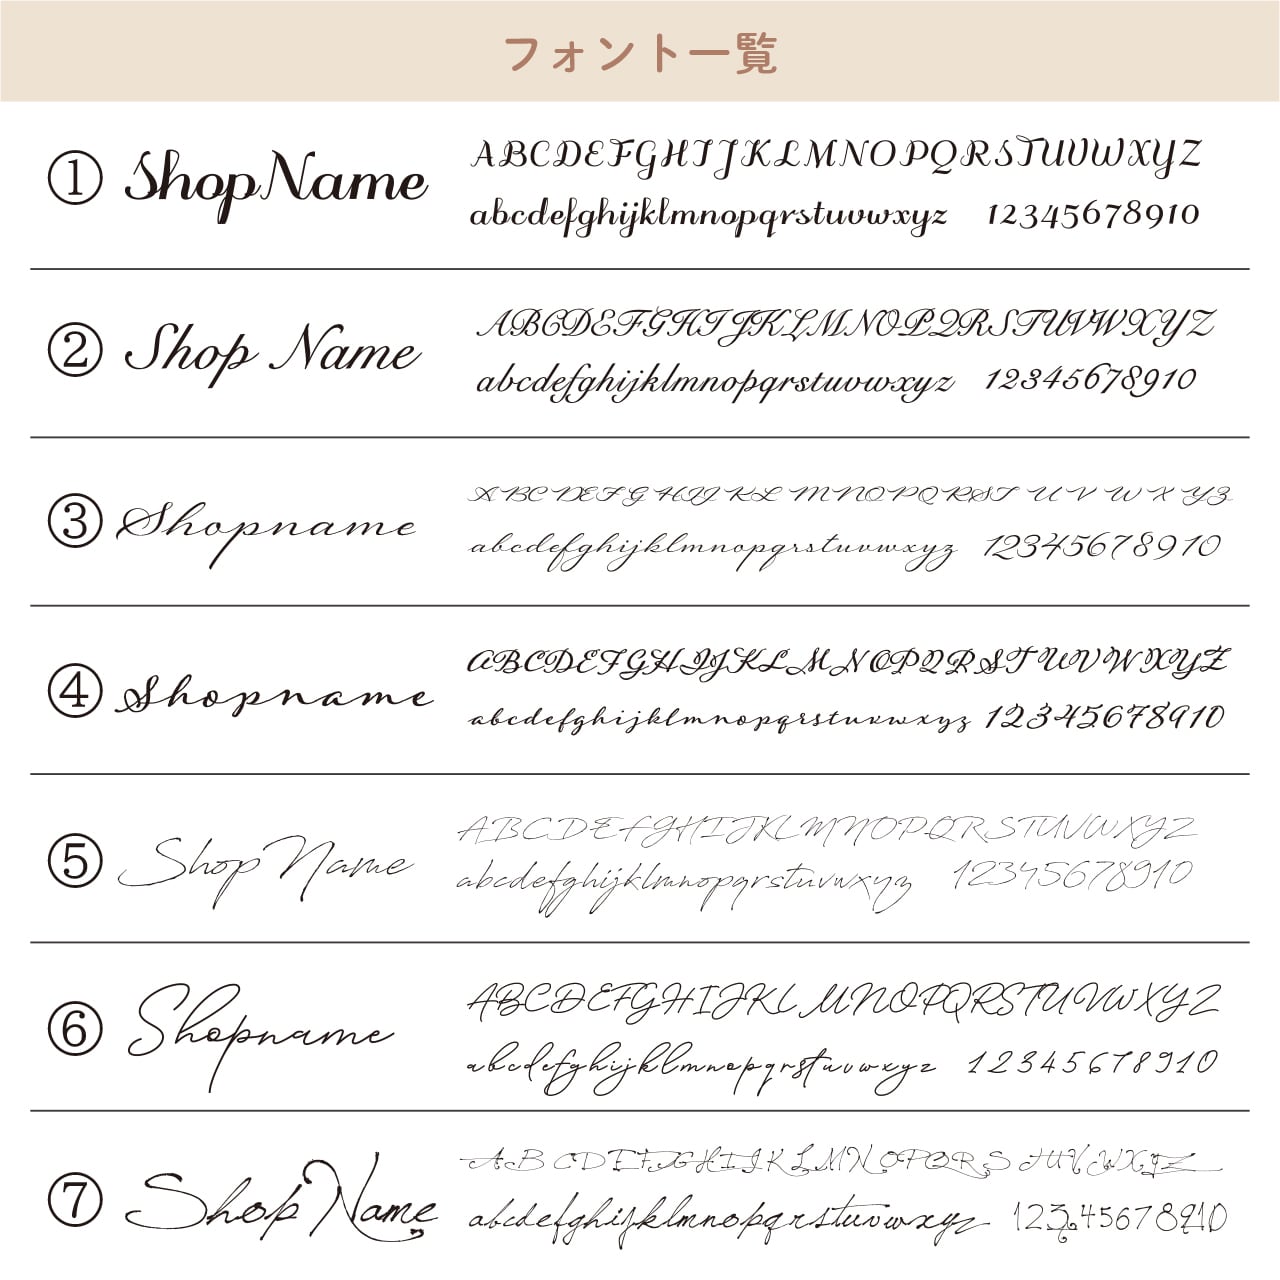 フォント一覧
① ShopName
ABCDEFGHIJKLMNOPQRSTUVWXYZ
abcdefghijklmnopqrstuvwxyz 12345678910
② Shop Name
ABCDEFGHIJKLMNOPQRSTUVWXYZ
abcdefghijklmnopqrstuvwxyz 12345678910
③ Shopname
ABCDEFGHIJKLMNOPQRSTUVWXYZ
abcdefghijklmnopqrstuvwxyz 12345678910
④ Shopname
ABCDEFGHIJKLMNOPQRSTUVWXYZ
abcdefghijklmnopqrstuvwxyz 12345678910
⑤ Shop Name
ABCDEFGHIJKLMNOPQRSTUVWXYZ
abcdefghijklmnopqrstuvwxyz 12345678910
⑥ Shopname
ABCDEFGHIJKLMNOPQRSTUVWXYZ
abcdefghijklmnopqrstuvwxyz 12345678910
⑦ Shop Name
ABCDEFGHIJKLMNOPQRSTUVWXYZ
abcdefghijklmnopqrstuvwxyz 12345678910